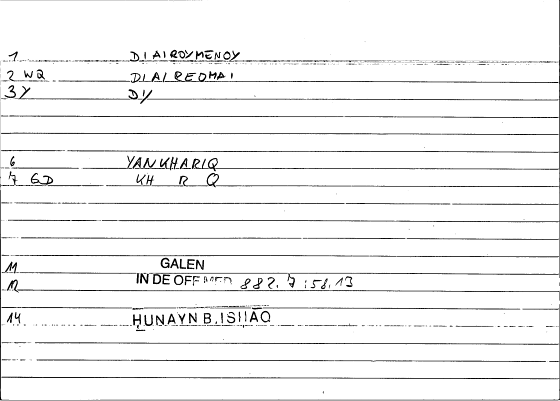 1 DIAIROYMENOY
2 WQ DIAIREOMAI
3 Y DY
6 YANKHARIQ
7 GD KH R Q
11 GALEN
12 IN DE OFF MED 882. 7 : 58. 13
14 HUNAYN B. ISHAQ